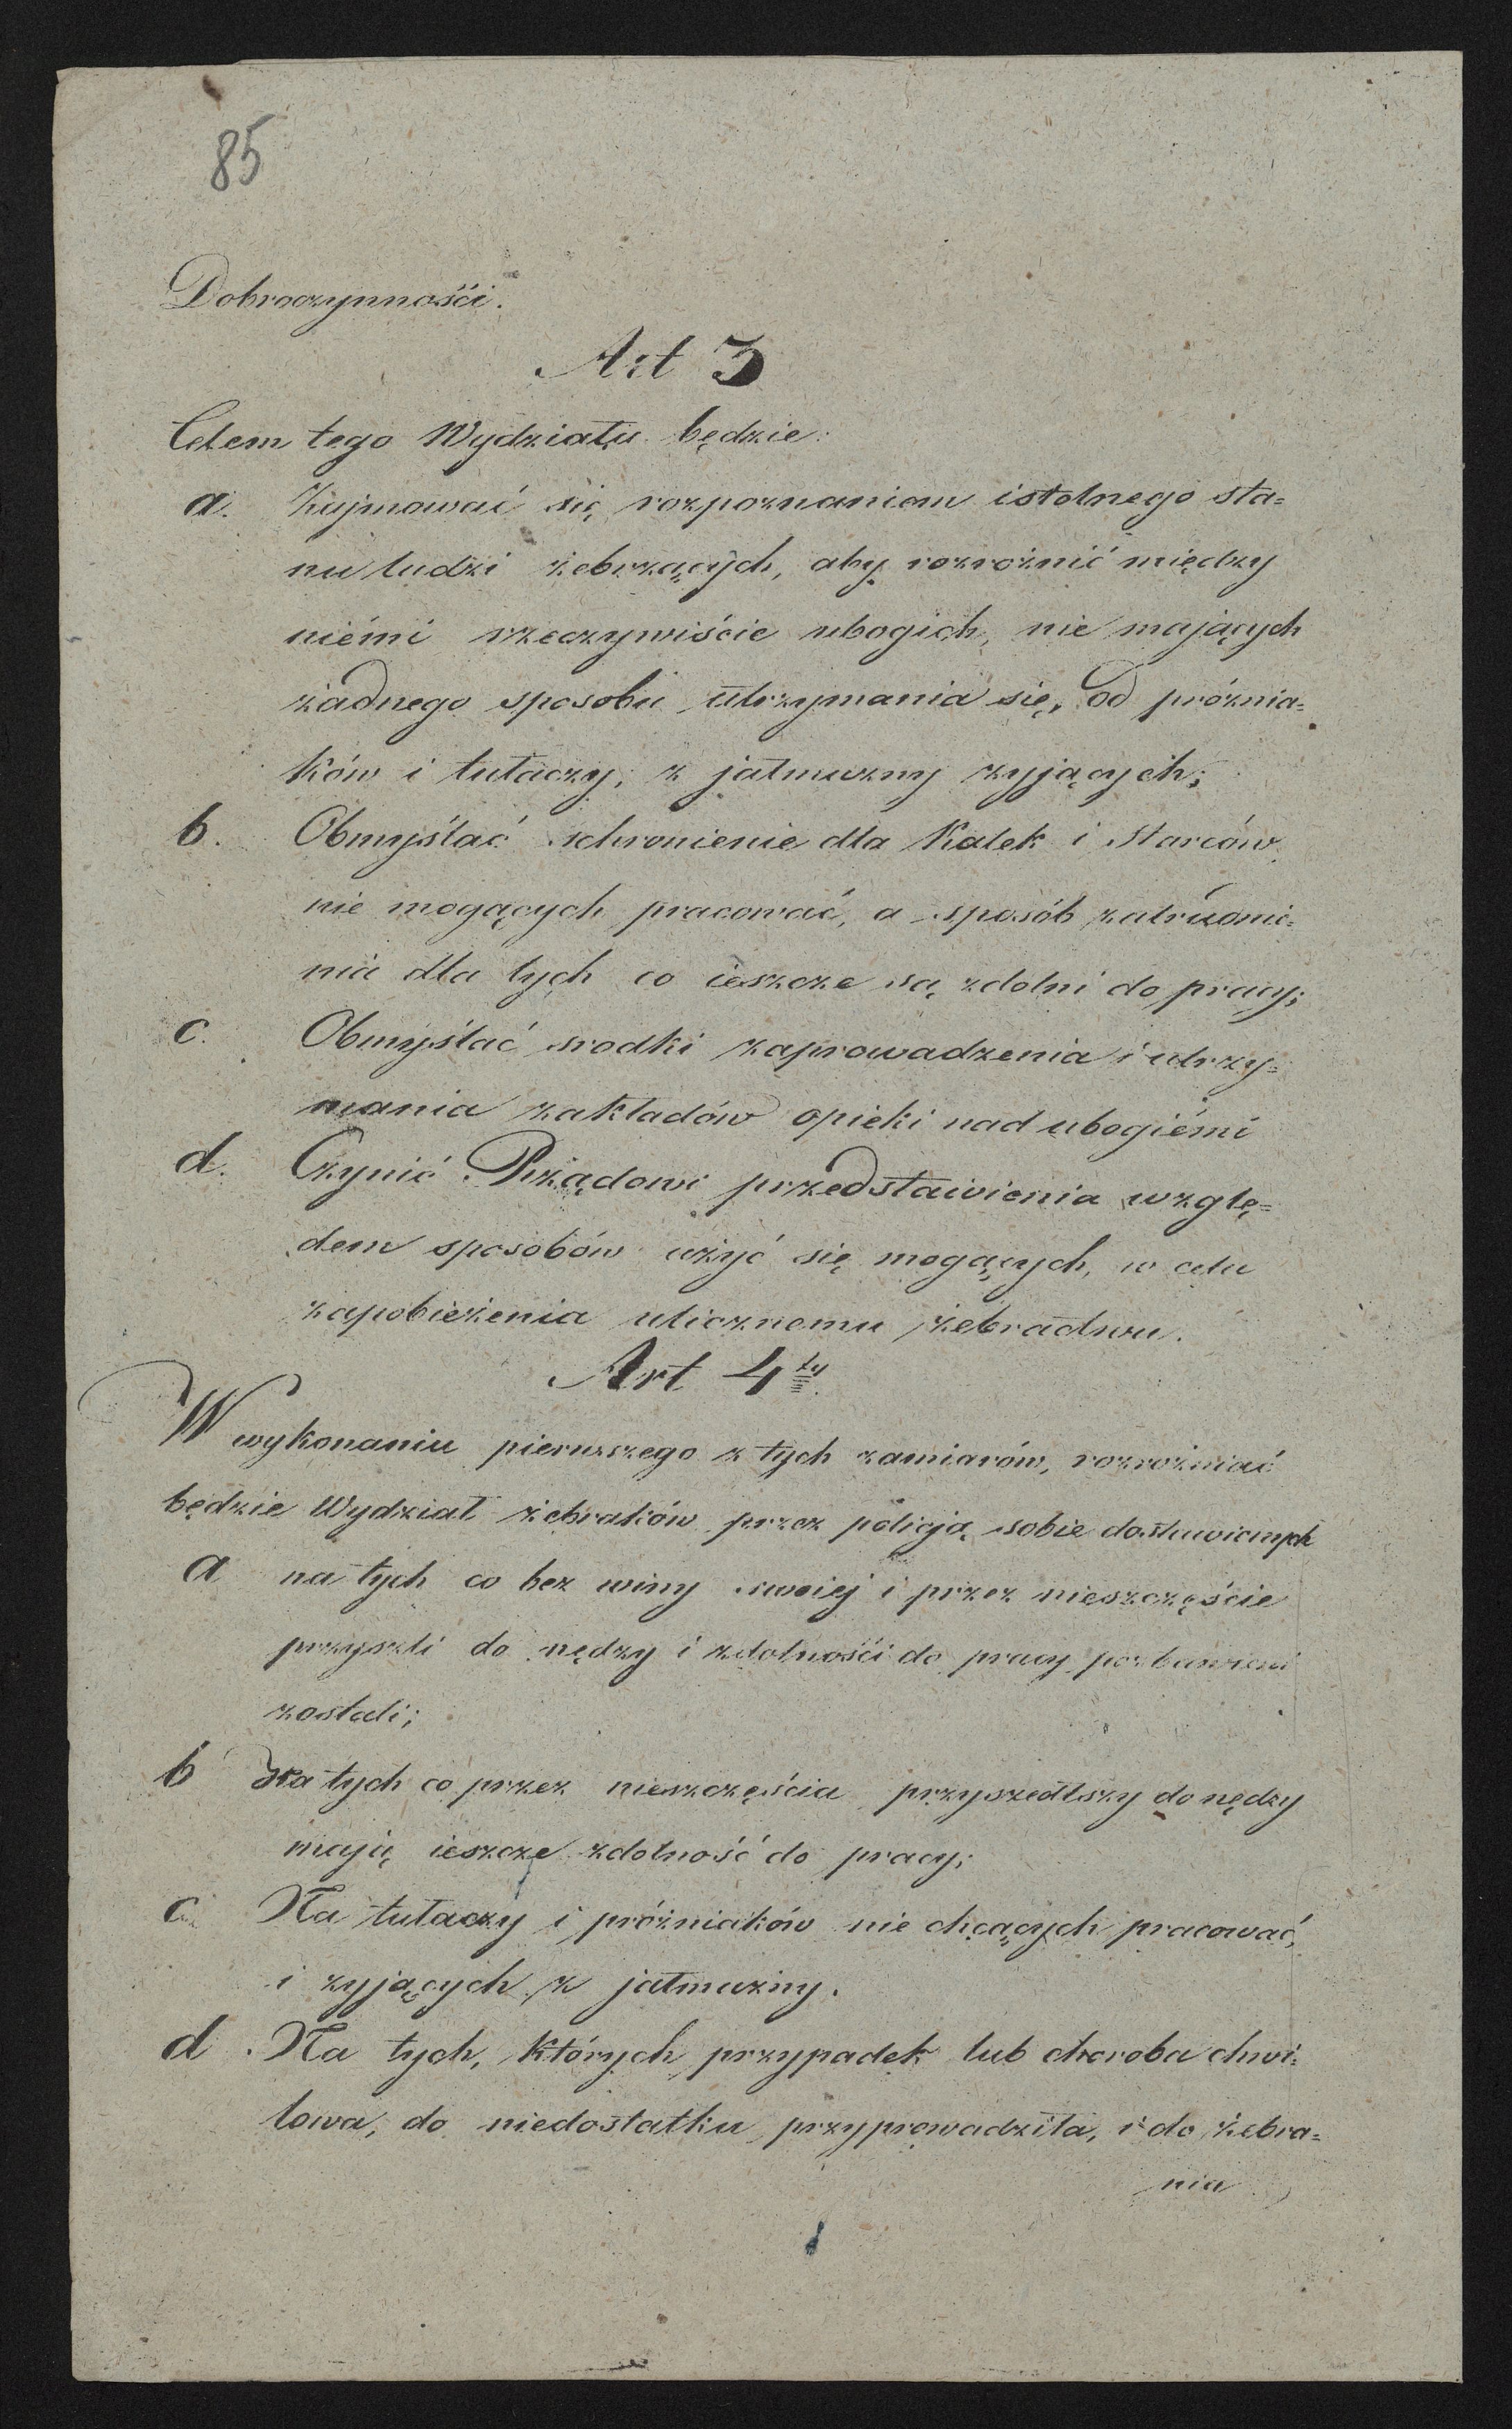 85
Dobroczynnośći.
Art 3
Celem tego Wydziału będzie:
a. Zajmować się rozpoznaniem istolnego sta=
nu ludzi żebrzących, aby rozrożnić między
niémi rzeczywiście ubogich, nie mających
żadnego sposobu utrzymania się, od próżnia=
ków i tułaczy, z jałmużny żyjących;
b. Obmyślać schronienie dla Kalek i Starców
nie mogących pracować, a sposób zatrudnie=
nia dla tych co ieszcze są zdolni do pracy;
c. Obmyślać srodki zaprowadzenia i utrzy=
mania zakładów opieki nad ubogiémi
d. Czynić Rządowi przedstawienia wzglę=
dem sposobów użyć się mogących, w celu
zapobieżenia ulicznemu żebractwu.
Art 4ty
W wykonaniu pierwszego z tych zamiarów, rozrożniać
będzie Wydział żebraków przez policją sobie dostawionych
a na tych co bez winy swoiéj i przez nieszczęście
przyszli do nędzy i zdolnośći do pracy pozbawieni
zostali;
b Na tych co przez nieszczęścia przyszedłszy do nędzy
mają ieszcze zdolność do pracy;
c. Na tułaczy i próżniaków nie chcących pracować,
i żyjących z jałmużny.
d. Na tych, których przypadek lub choroba chwi=
lowa, do niedostatku przyprowadziła, i do żebra=
nia